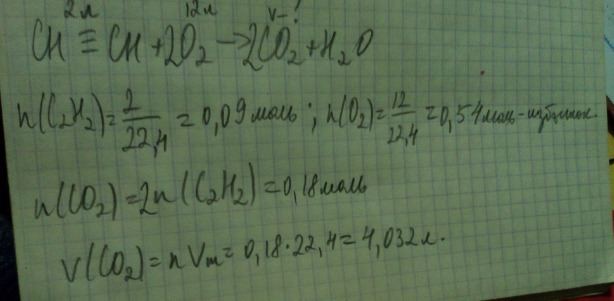 2л 12л V-?
CH ≡ CH + 2O₂ → 2CO₂ + H₂O
n(C₂H₂) = 2/22,4 = 0,09 моль; n(O₂) = 12/22,4 = 0,54 моль - избыток.
n(CO₂) = 2n(C₂H₂) = 0,18 моль
V(CO₂) = nVm = 0,18·22,4 = 4,032 л.